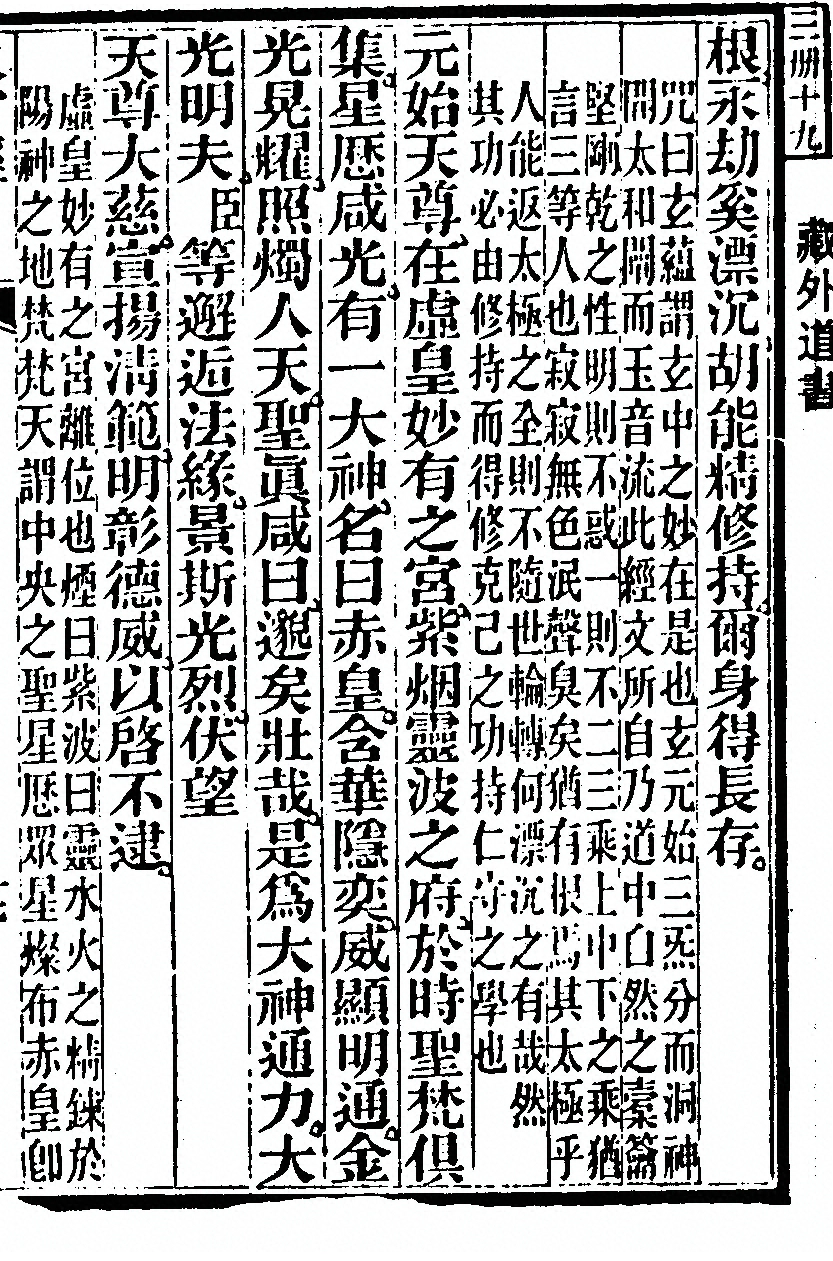 三册十九
藏外道書
根永劫奚漂沉胡能精修持爾身得長存
咒曰玄蘊謂玄中之妙在是也玄元始三炁分而洞神
開太和闢而玉音流此經文所自乃道中自然之橐籥
堅剛乾之性明則不惑一則不二三乘上中下之乘猶
言三等人也寂寂無色泯聲臭矣猶有根焉其太極乎
人能返太極之全則不隨世輪轉何漂沉之有哉然
其功必由修持而得修克己之功持仁守之學也
元始天尊在虛皇妙有之宮紫烟靈波之府於時聖梵俱
集星歷咸光有一大神名曰赤皇含華隱奕威顯明通金
光晃耀照燭人天聖眞咸曰邈矣壯哉是爲大神通力大
光明夫臣等邂逅法緣景斯光烈伏望
天尊大慈宣揚淸範明彰德威以啓不逮
虛皇妙有之宮離位也煙曰紫波曰靈水火之精鍊於
陽神之地梵梵天謂中央之聖星歷眾星燦布赤皇卽